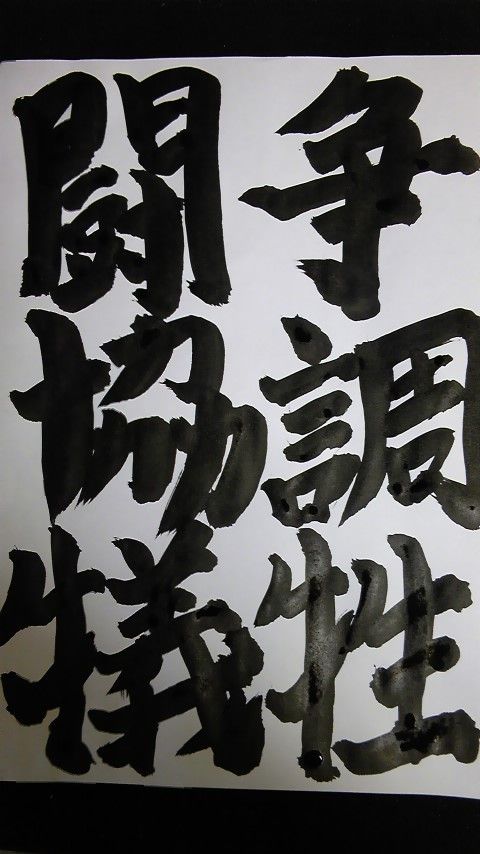 闘争
協調
犠牲